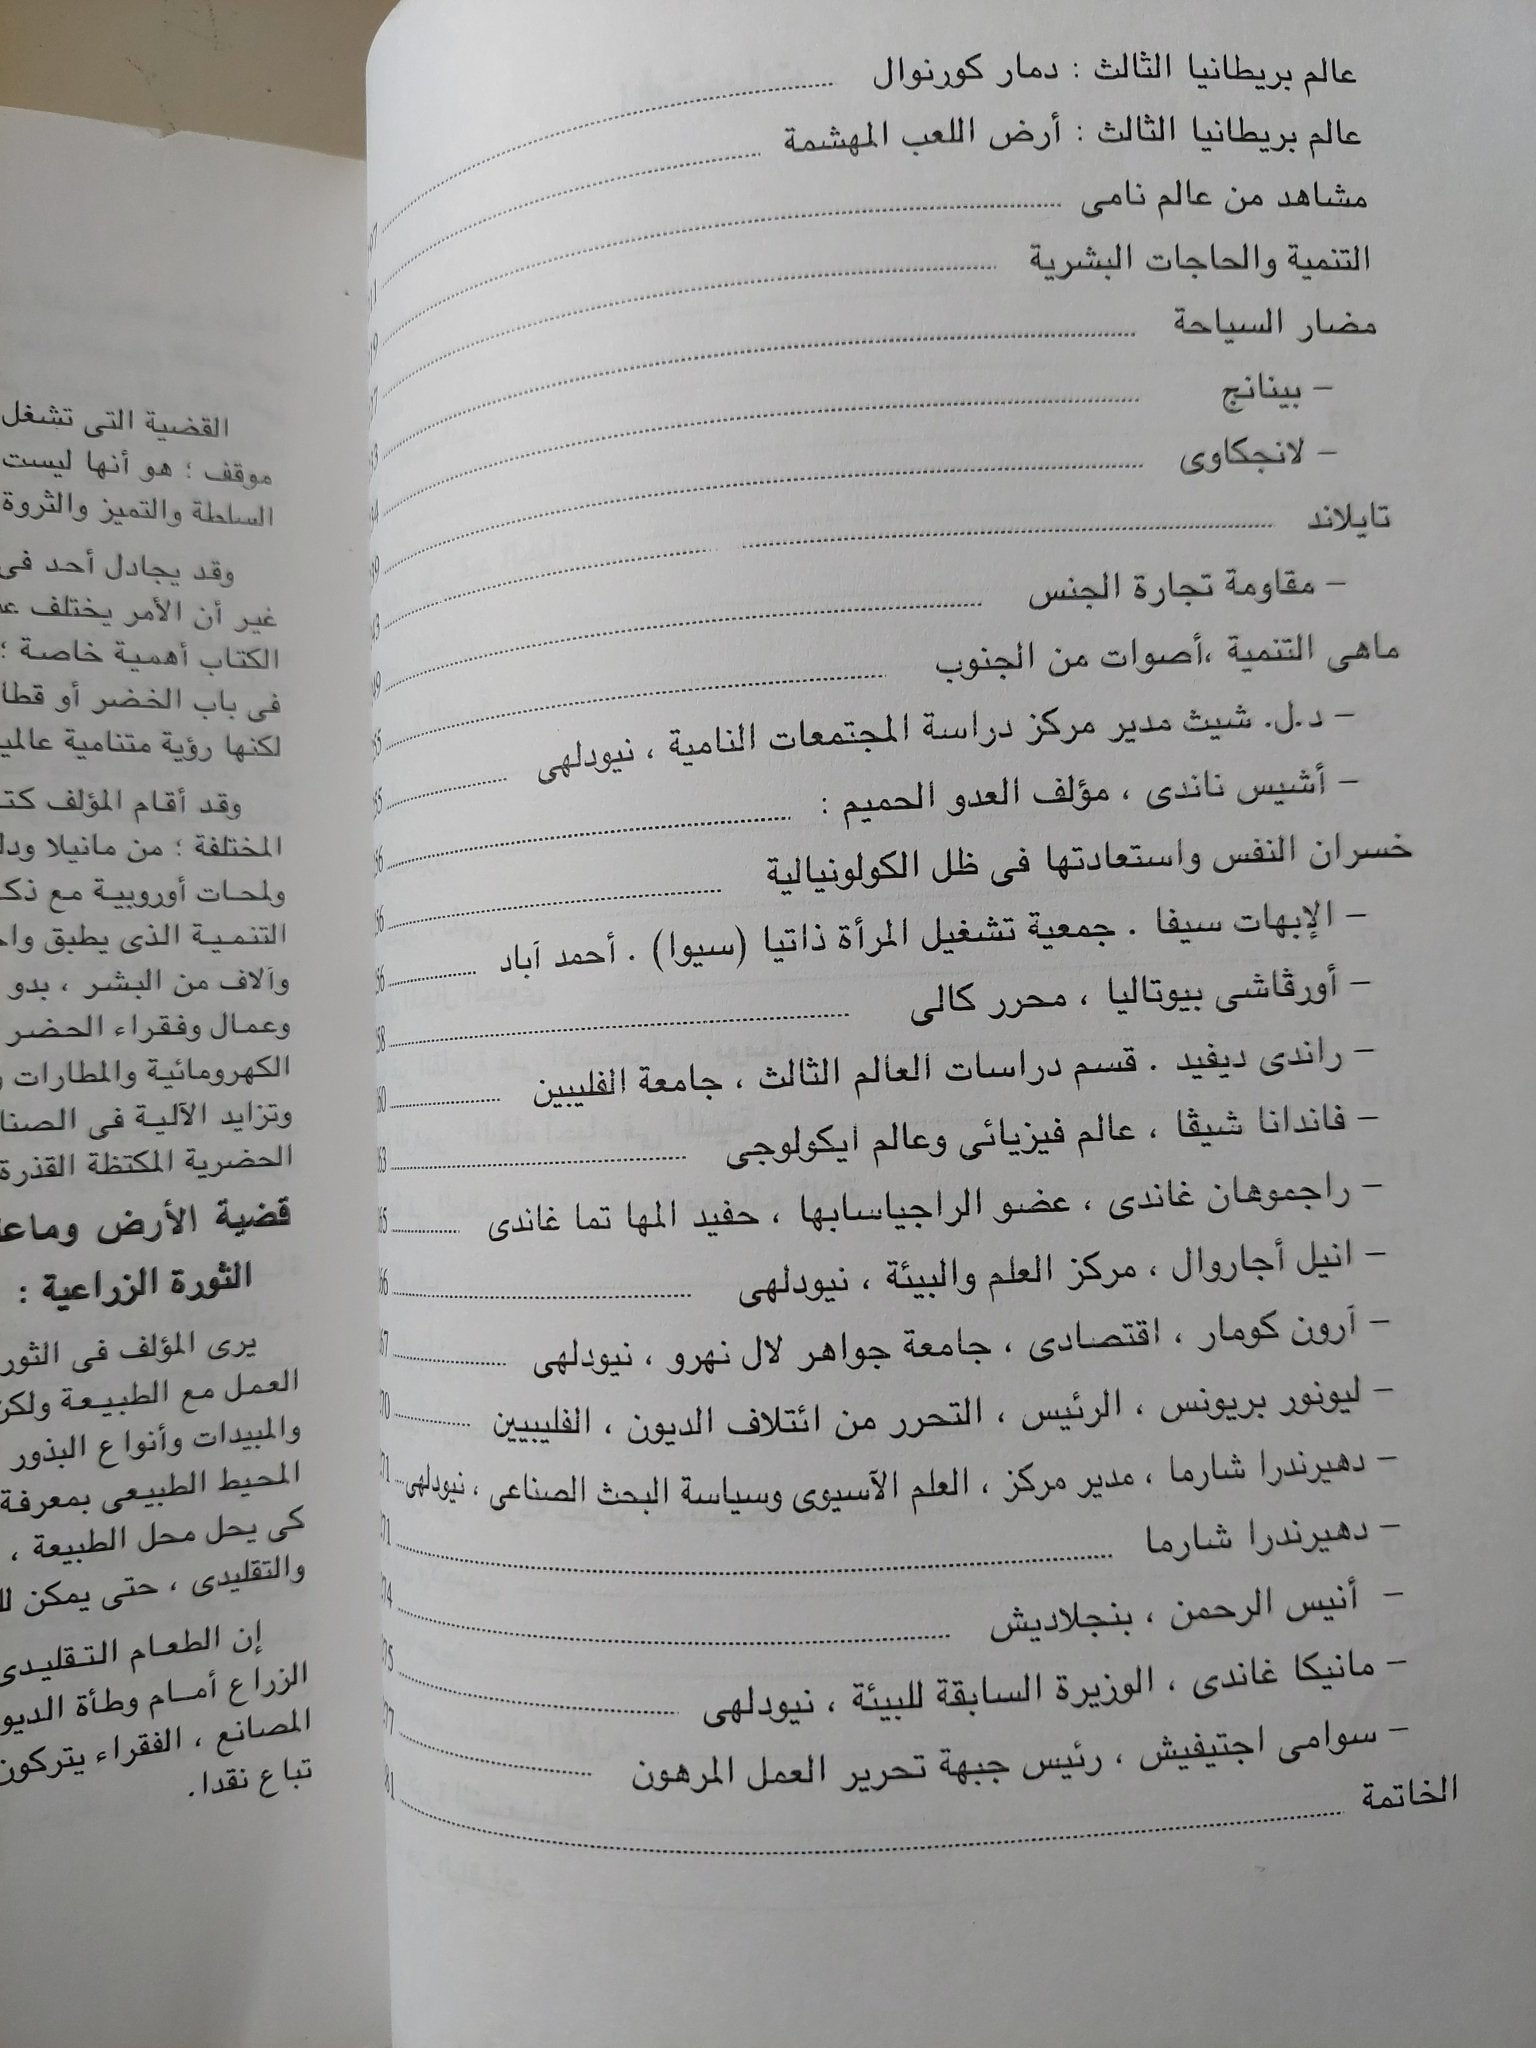 عالم بريطانيا الثالث : دمار كورنوال
عالم بريطانيا الثالث : أرض اللعب المهشمة
مشاهد من عالم نامى
التنمية والحاجات البشرية
مضار السياحة
– بينانج
– لانجكاوى
تايلاند
– مقاومة تجارة الجنس
ماهى التنمية ،أصوات من الجنوب
– د.ل. شيث مدير مركز دراسة المجتمعات النامية ، نيودلهى
– أشيس ناندى ، مؤلف العدو الحميم :
خسران النفس واستعادتها فى ظل الكولونيالية
– الإبهات سيفا . جمعية تشغيل المرأة ذاتيا (سيوا) . أحمد آباد
– أورڤاشى بيوتاليا ، محرر كالى
– راندى ديفيد . قسم دراسات العالم الثالث ، جامعة الفليبين
– فاندانا شيڤا ، عالم فيزيائى وعالم ايكولوجى
– راجموهان غاندى ، عضو الراجياسابها ، حفيد المها تما غاندى
– انيل أجاروال ، مركز العلم والبيئة ، نيودلهى
– آرون كومار ، اقتصادى ، جامعة جواهر لال نهرو ، نيودلهى
– ليونور بريونس ، الرئيس ، التحرر من ائتلاف الديون ، الفليبيين
– دهيرندرا شارما ، مدير مركز ، العلم الآسيوى وسياسة البحث الصناعى ، نيودلهى
– دهيرندرا شارما
– أنيس الرحمن ، بنجلاديش
– مانيكا غاندى ، الوزيرة السابقة للبيئة ، نيودلهى
– سوامى اجتيفيش ، رئيس جبهة تحرير العمل المرهون
الخاتمة
القضية التى تشغل
موقف ؛ هو أنها ليست
السلطة والتميز والثروة
وقد يجادل أحد فى
غير أن الأمر يختلف
الكتاب أهمية خاصة ؛
فى باب الخضر أو
لكنها رؤية متنامية
وقد أقام المؤلف
المختلفة ؛ من مانيلا
ولمحات أوروبية مع
التنمية الذى يطبق
وآلاف من البشر ، بدو
وعمال وفقراء الحضر
الكهرومائية والمطارات
وتزايد الآلية فى
الحضرية المكتظة القذرة
قضية الأرض
الثورة الزراعية :
يرى المؤلف فى
العمل مع الطبيعة
والمبيدات وأنواع البذور
المحيط الطبيعى بمعرفة
كى يحل محل الطبيعة ،
والتقليدى ، حتى يمكن
إن الطعام التقليدى
الزراع أمام وطأة
المصانع ، الفقراء يتركون
تباع نقدا.